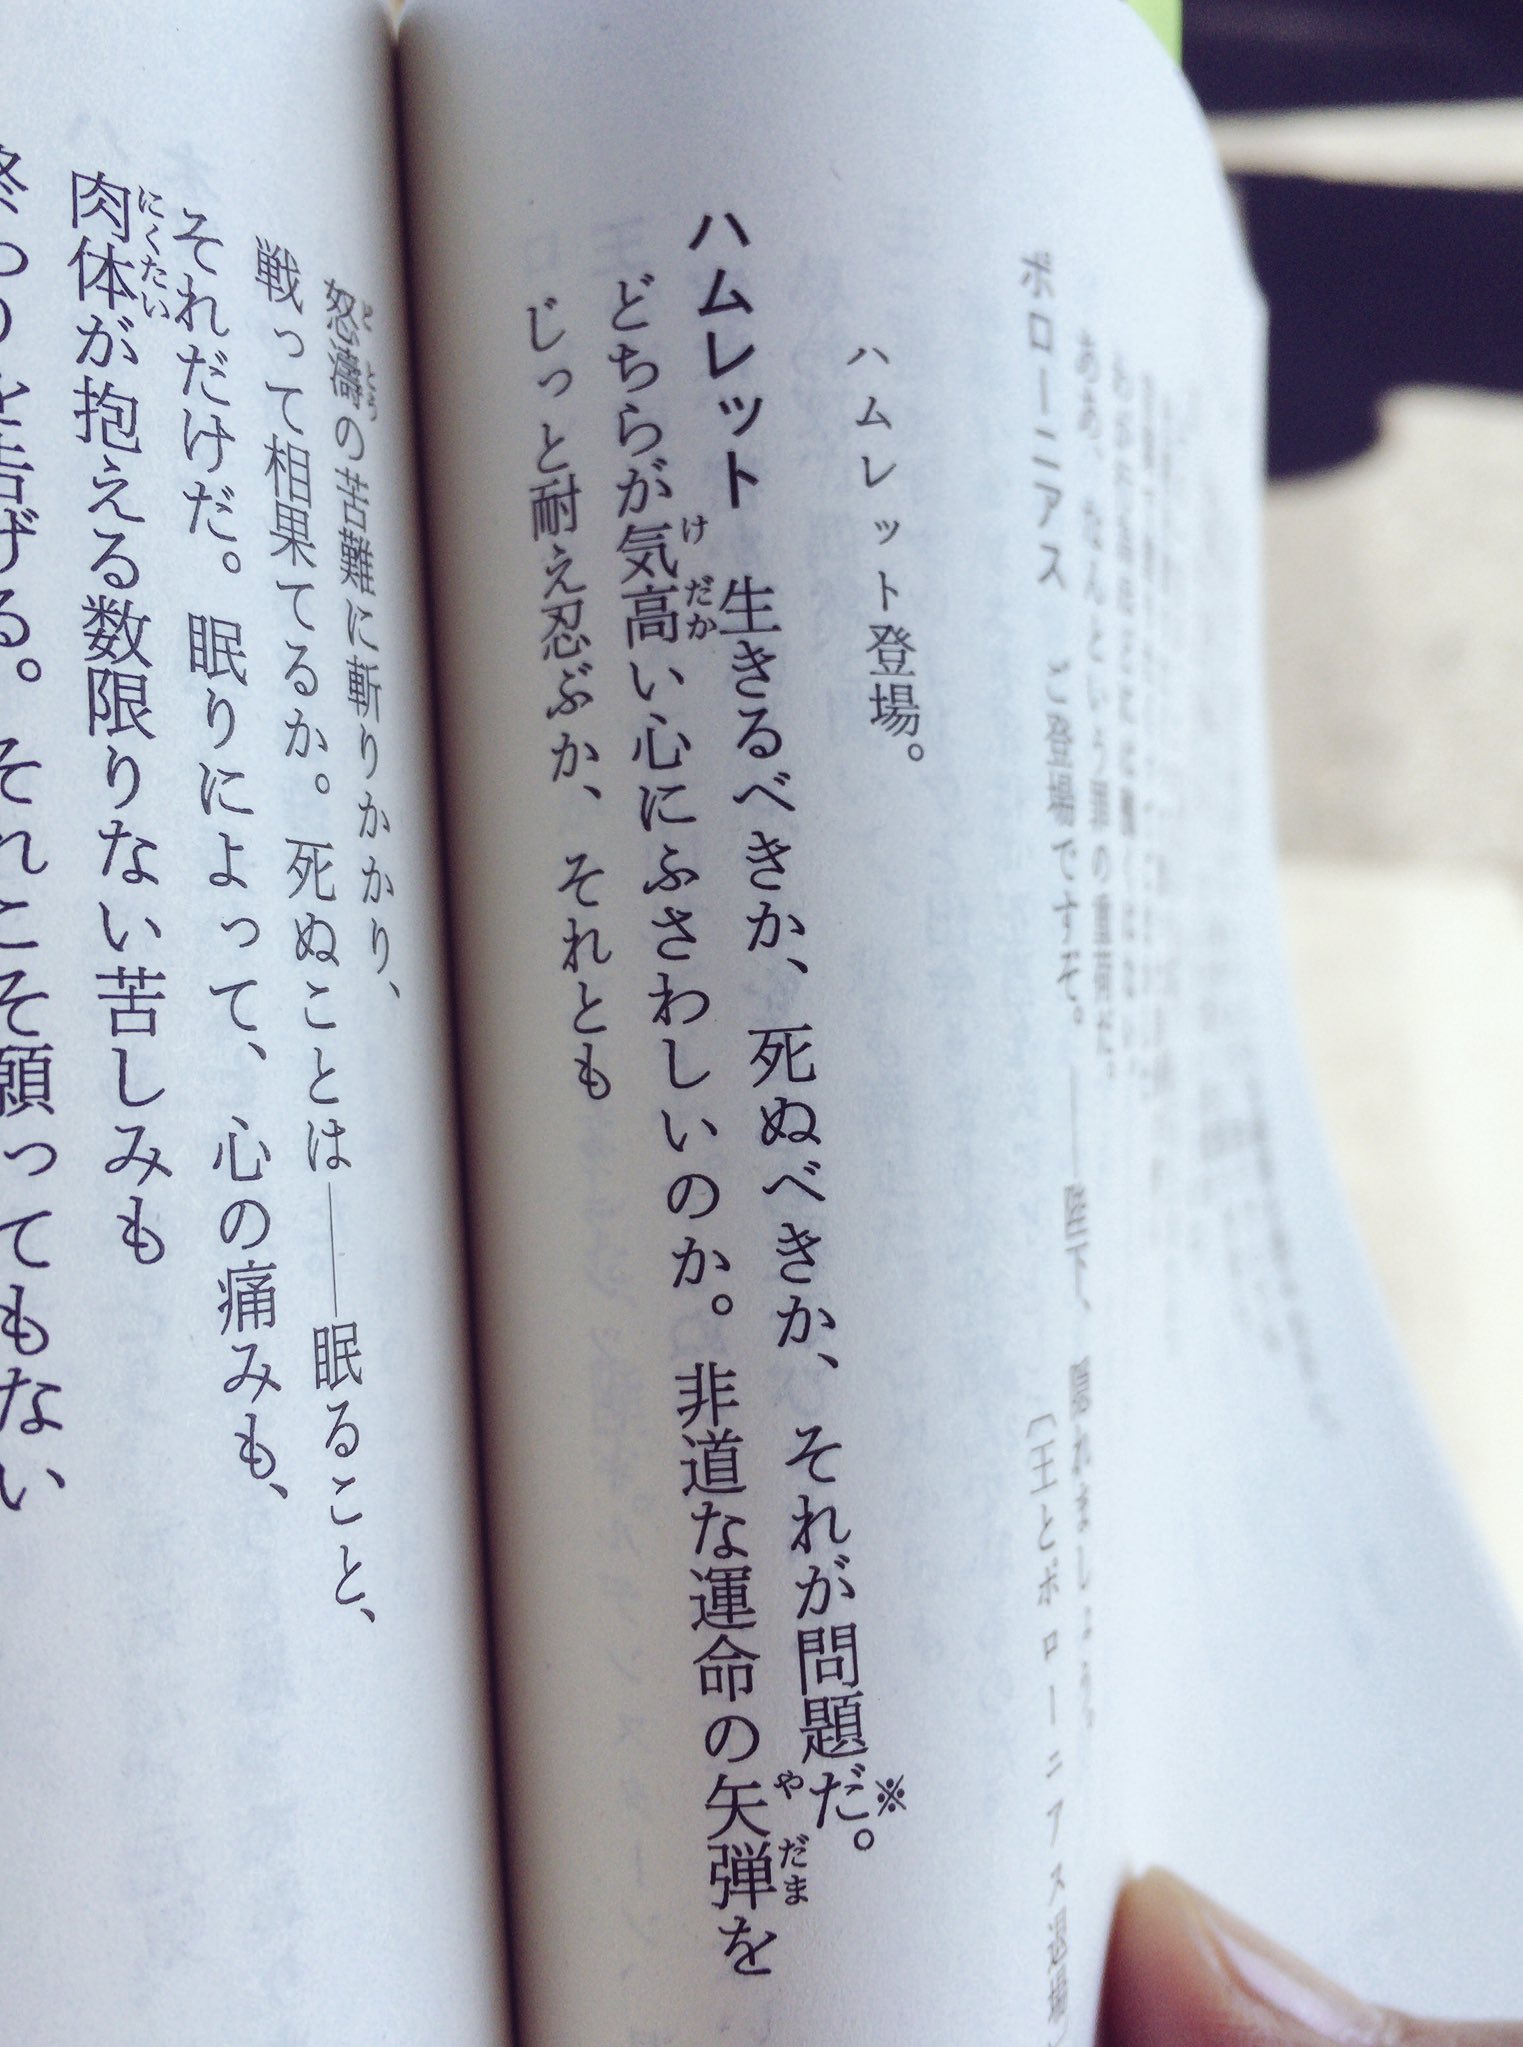 ああ、なんという罪の重荷だ。
ボローニアス　ご登場ですぞ。――陛下、隠れましょう。
〔王とボローニアス退場〕
ハムレット登場。
ハムレット　生きるべきか、死ぬべきか、それが問題だ※。
どちらが気高い心にふさわしいのか。非道な運命の矢弾を
じっと耐え忍ぶか、それとも
怒濤の苦難に斬りかかり、
戦って相果てるか。死ぬことは――眠ること、
それだけだ。眠りによって、心の痛みも、
肉体が抱える数限りない苦しみも
終わりを告げる。それこそ願ってもない